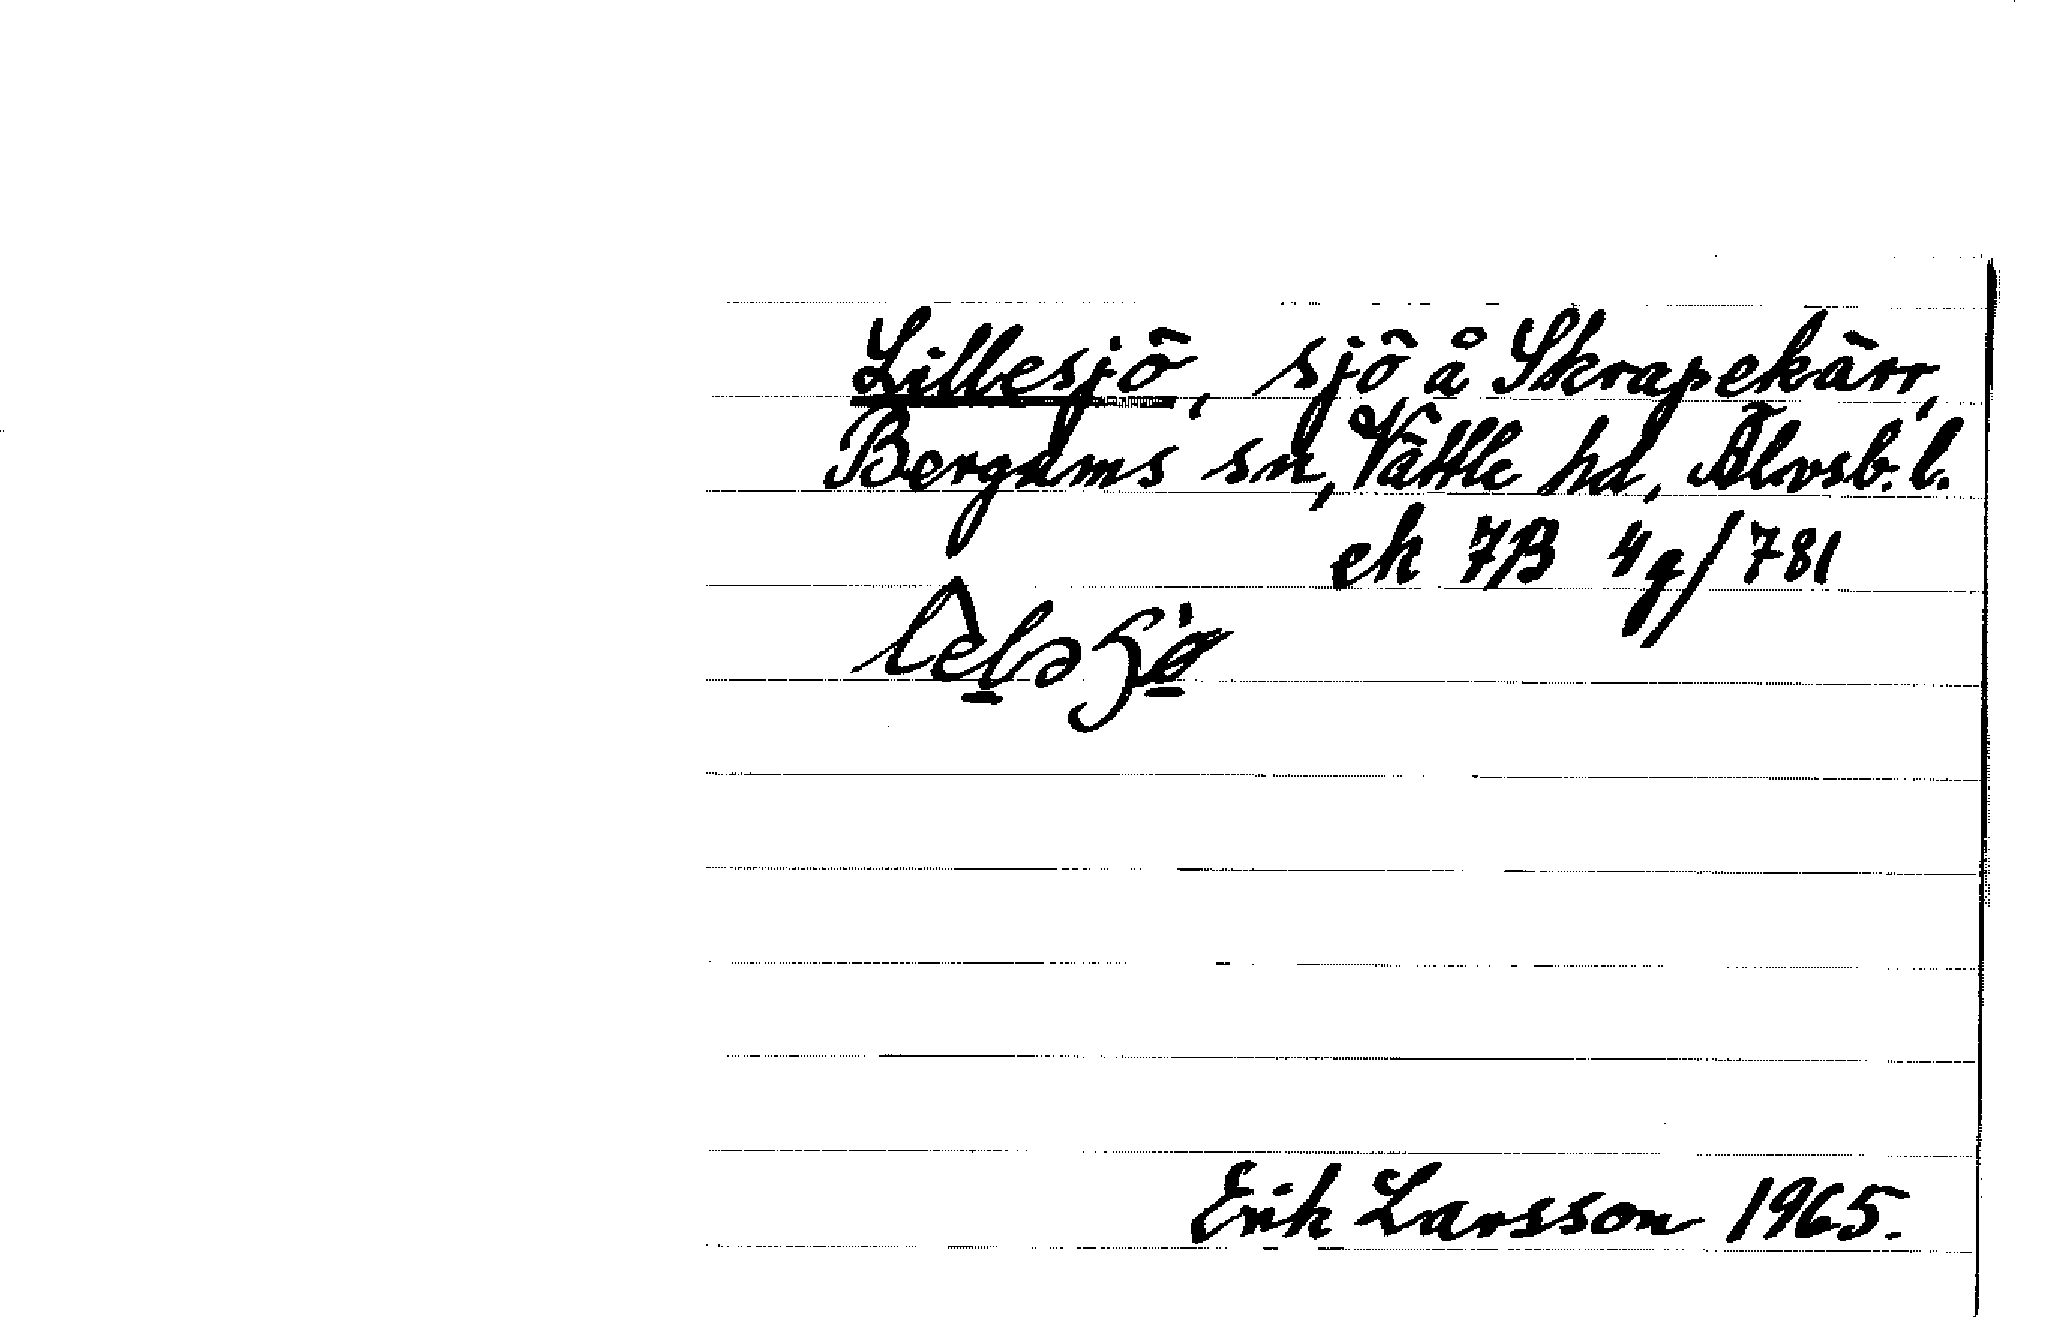 Lillesjö, sjö å Skrapekärr,
Bergums sn, Vättle hd, Älvsb. l.
ek 7B 4g/781
Erik Larsson 1965.